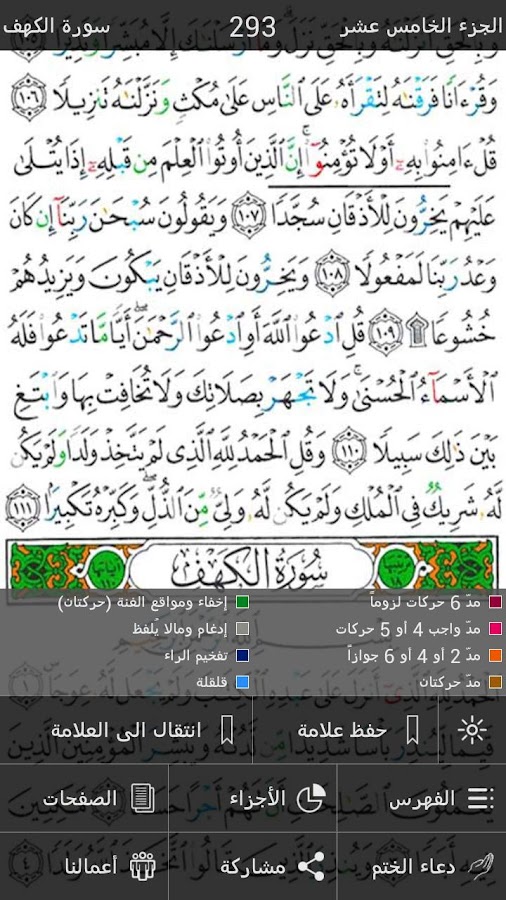 الجزء الخامس عشر 293 سورة الكهف
وَبِالْحَقِّ أَنزَلْنَاهُ وَبِالْحَقِّ نَزَلَ وَمَا أَرْسَلْنَاكَ إِلَّا مُبَشِّرًا وَنَذِيرًا
وَقُرْءَانًا فَرَقْنَٰهُ لِتَقْرَأَهُۥ عَلَى ٱلنَّاسِ عَلَىٰ مُكْثٍ وَنَزَّلْنَٰهُ تَنزِيلًا ١٠٦
قُلْ ءَامِنُوا۟ بِهِۦٓ أَوْ لَا تُؤْمِنُوٓا۟ ۚ إِنَّ ٱلَّذِينَ أُوتُوا۟ ٱلْعِلْمَ مِن قَبْلِهِۦٓ إِذَا يُتْلَىٰ
عَلَيْهِمْ يَخِرُّونَ لِلْأَذْقَانِ سُجَّدًا ١٠٧ وَيَقُولُونَ سُبْحَٰنَ رَبِّنَآ إِن كَانَ
وَعْدُ رَبِّنَا لَمَفْعُولًا ١٠٨ وَيَخِرُّونَ لِلْأَذْقَانِ يَبْكُونَ وَيَزِيدُهُمْ
خُشُوعًا ۩ ١٠٩ قُلِ ٱدْعُوا۟ ٱللَّهَ أَوِ ٱدْعُوا۟ ٱلرَّحْمَٰنَ ۖ أَيًّا مَّا تَدْعُوا۟ فَلَهُ
ٱلْأَسْمَآءُ ٱلْحُسْنَىٰ ۚ وَلَا تَجْهَرْ بِصَلَاتِكَ وَلَا تُخَافِتْ بِهَا وَٱبْتَغِ
بَيْنَ ذَٰلِكَ سَبِيلًا ١١٠ وَقُلِ ٱلْحَمْدُ لِلَّهِ ٱلَّذِى لَمْ يَتَّخِذْ وَلَدًا وَلَمْ يَكُن
لَّهُۥ شَرِيكٌ فِى ٱلْمُلْكِ وَلَمْ يَكُن لَّهُۥ وَلِىٌّ مِّنَ ٱلذُّلِّ ۖ وَكَبِّرْهُ تَكْبِيرًۢا ١١١
سُورَةُ الْكَهْفِ
مدّ 6 حركات لزوماً إخفاء ومواقع الغنة (حركتان)
مدّ واجب 4 أو 5 حركات إدغام ومالا يلفظ
مدّ 2 أو 4 أو 6 جوازاً تفخيم الراء
مدّ حركتان قلقلة
حفظ علامة انتقال الى العلامة
الفهرس الأجزاء الصفحات
دعاء الختم مشاركة أعمالنا